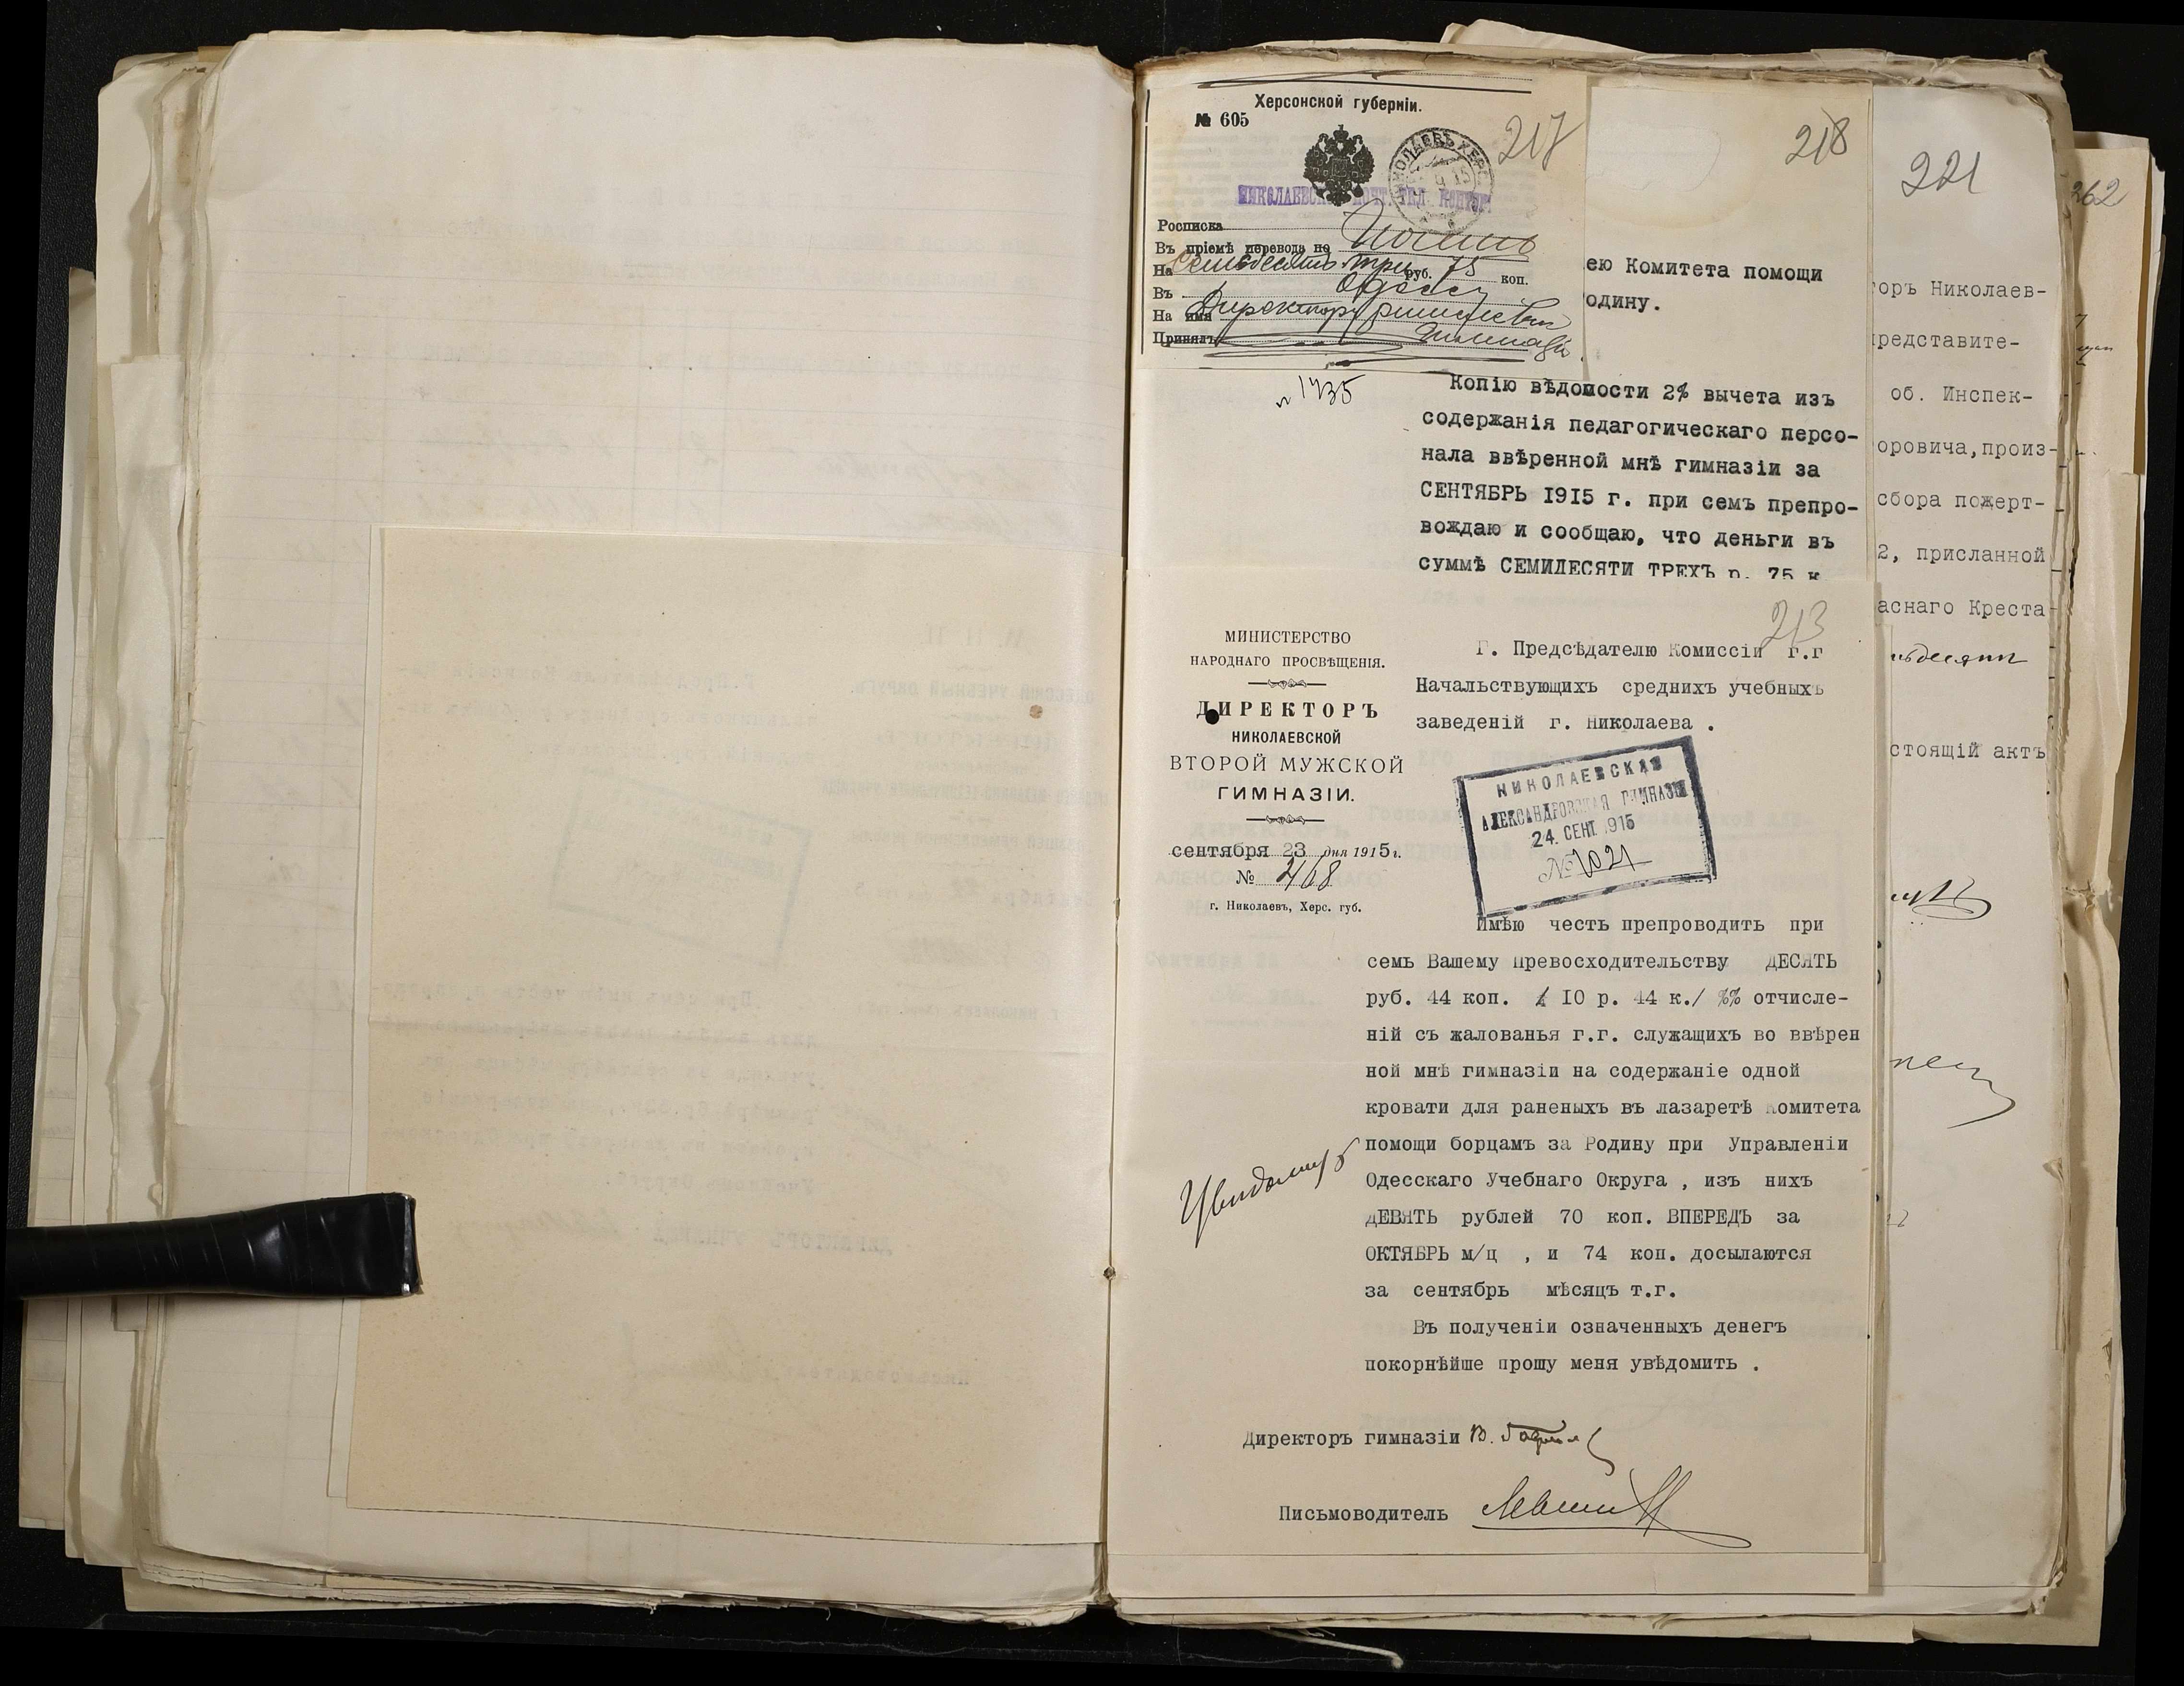 Херсонской губерніи.
№ 605
217
НИКОЛАЕВЪ ХЕРС.
Росписка
Въ пріемѣ перевода по Почтѣ
На Семьдесятъ три руб. 75 коп.
Въ Одессу
На имя Директору Ришельев
Принялъ Гимназіи
218
ею Комитета помощи
одину.
№ 1735
Копію вѣдомости 2% вычета изъ
содержанія педагогическаго персо-
нала ввѣренной мнѣ гимназіи за
СЕНТЯБРЬ 1915 г. при семъ препро-
вождаю и сообщаю, что деньги въ
суммѣ СЕМИДЕСЯТИ ТРЕХЪ р. 75 к
213
МИНИСТЕРСТВО
НАРОДНАГО ПРОСВѢЩЕНІЯ.
ДИРЕКТОРЪ
НИКОЛАЕВСКОЙ
ВТОРОЙ МУЖСКОЙ
ГИМНАЗІИ.
сентября 23 дня 1915 г.
№ 2168
г. Николаевъ, Херс. губ.
Г. Предсѣдателю Комиссіи г.г
Начальствующихъ среднихъ учебныхъ
заведеній г. Николаева .
НИКОЛАЕВСКАЯ
АЛЕКСАНДРОВСКАЯ ГИМНАЗІЯ
24. СЕНТ. 1915
№ 1021
Имѣю честь препроводить при
семъ Вашему Превосходительству ДЕСЯТЬ
руб. 44 коп. / 10 р. 44 к./ %% отчисле-
ній съ жалованья г.г. служащихъ во ввѣрен
ной мнѣ гимназіи на содержаніе одной
кровати для раненыхъ въ лазаретѣ Комитета
помощи борцамъ за Родину при Управленіи
Одесскаго Учебнаго Округа , изъ нихъ
ДЕВЯТЬ рублей 70 коп. ВПЕРЕДЪ за
ОКТЯБРЬ м/ц , и 74 коп. досылаются
за сентябрь мѣсяцъ т.г.
Въ полученіи означенныхъ денегъ
покорнѣйше прошу меня увѣдомить .
Увѣдомить
Директоръ гимназіи В.
Письмоводитель
221
оръ Николаев-
представите-
об. Инспек-
оровича,произ-
сбора пожерт-
2, присланной
аснаго Креста
ьдесятъ
стоящій актъ
262